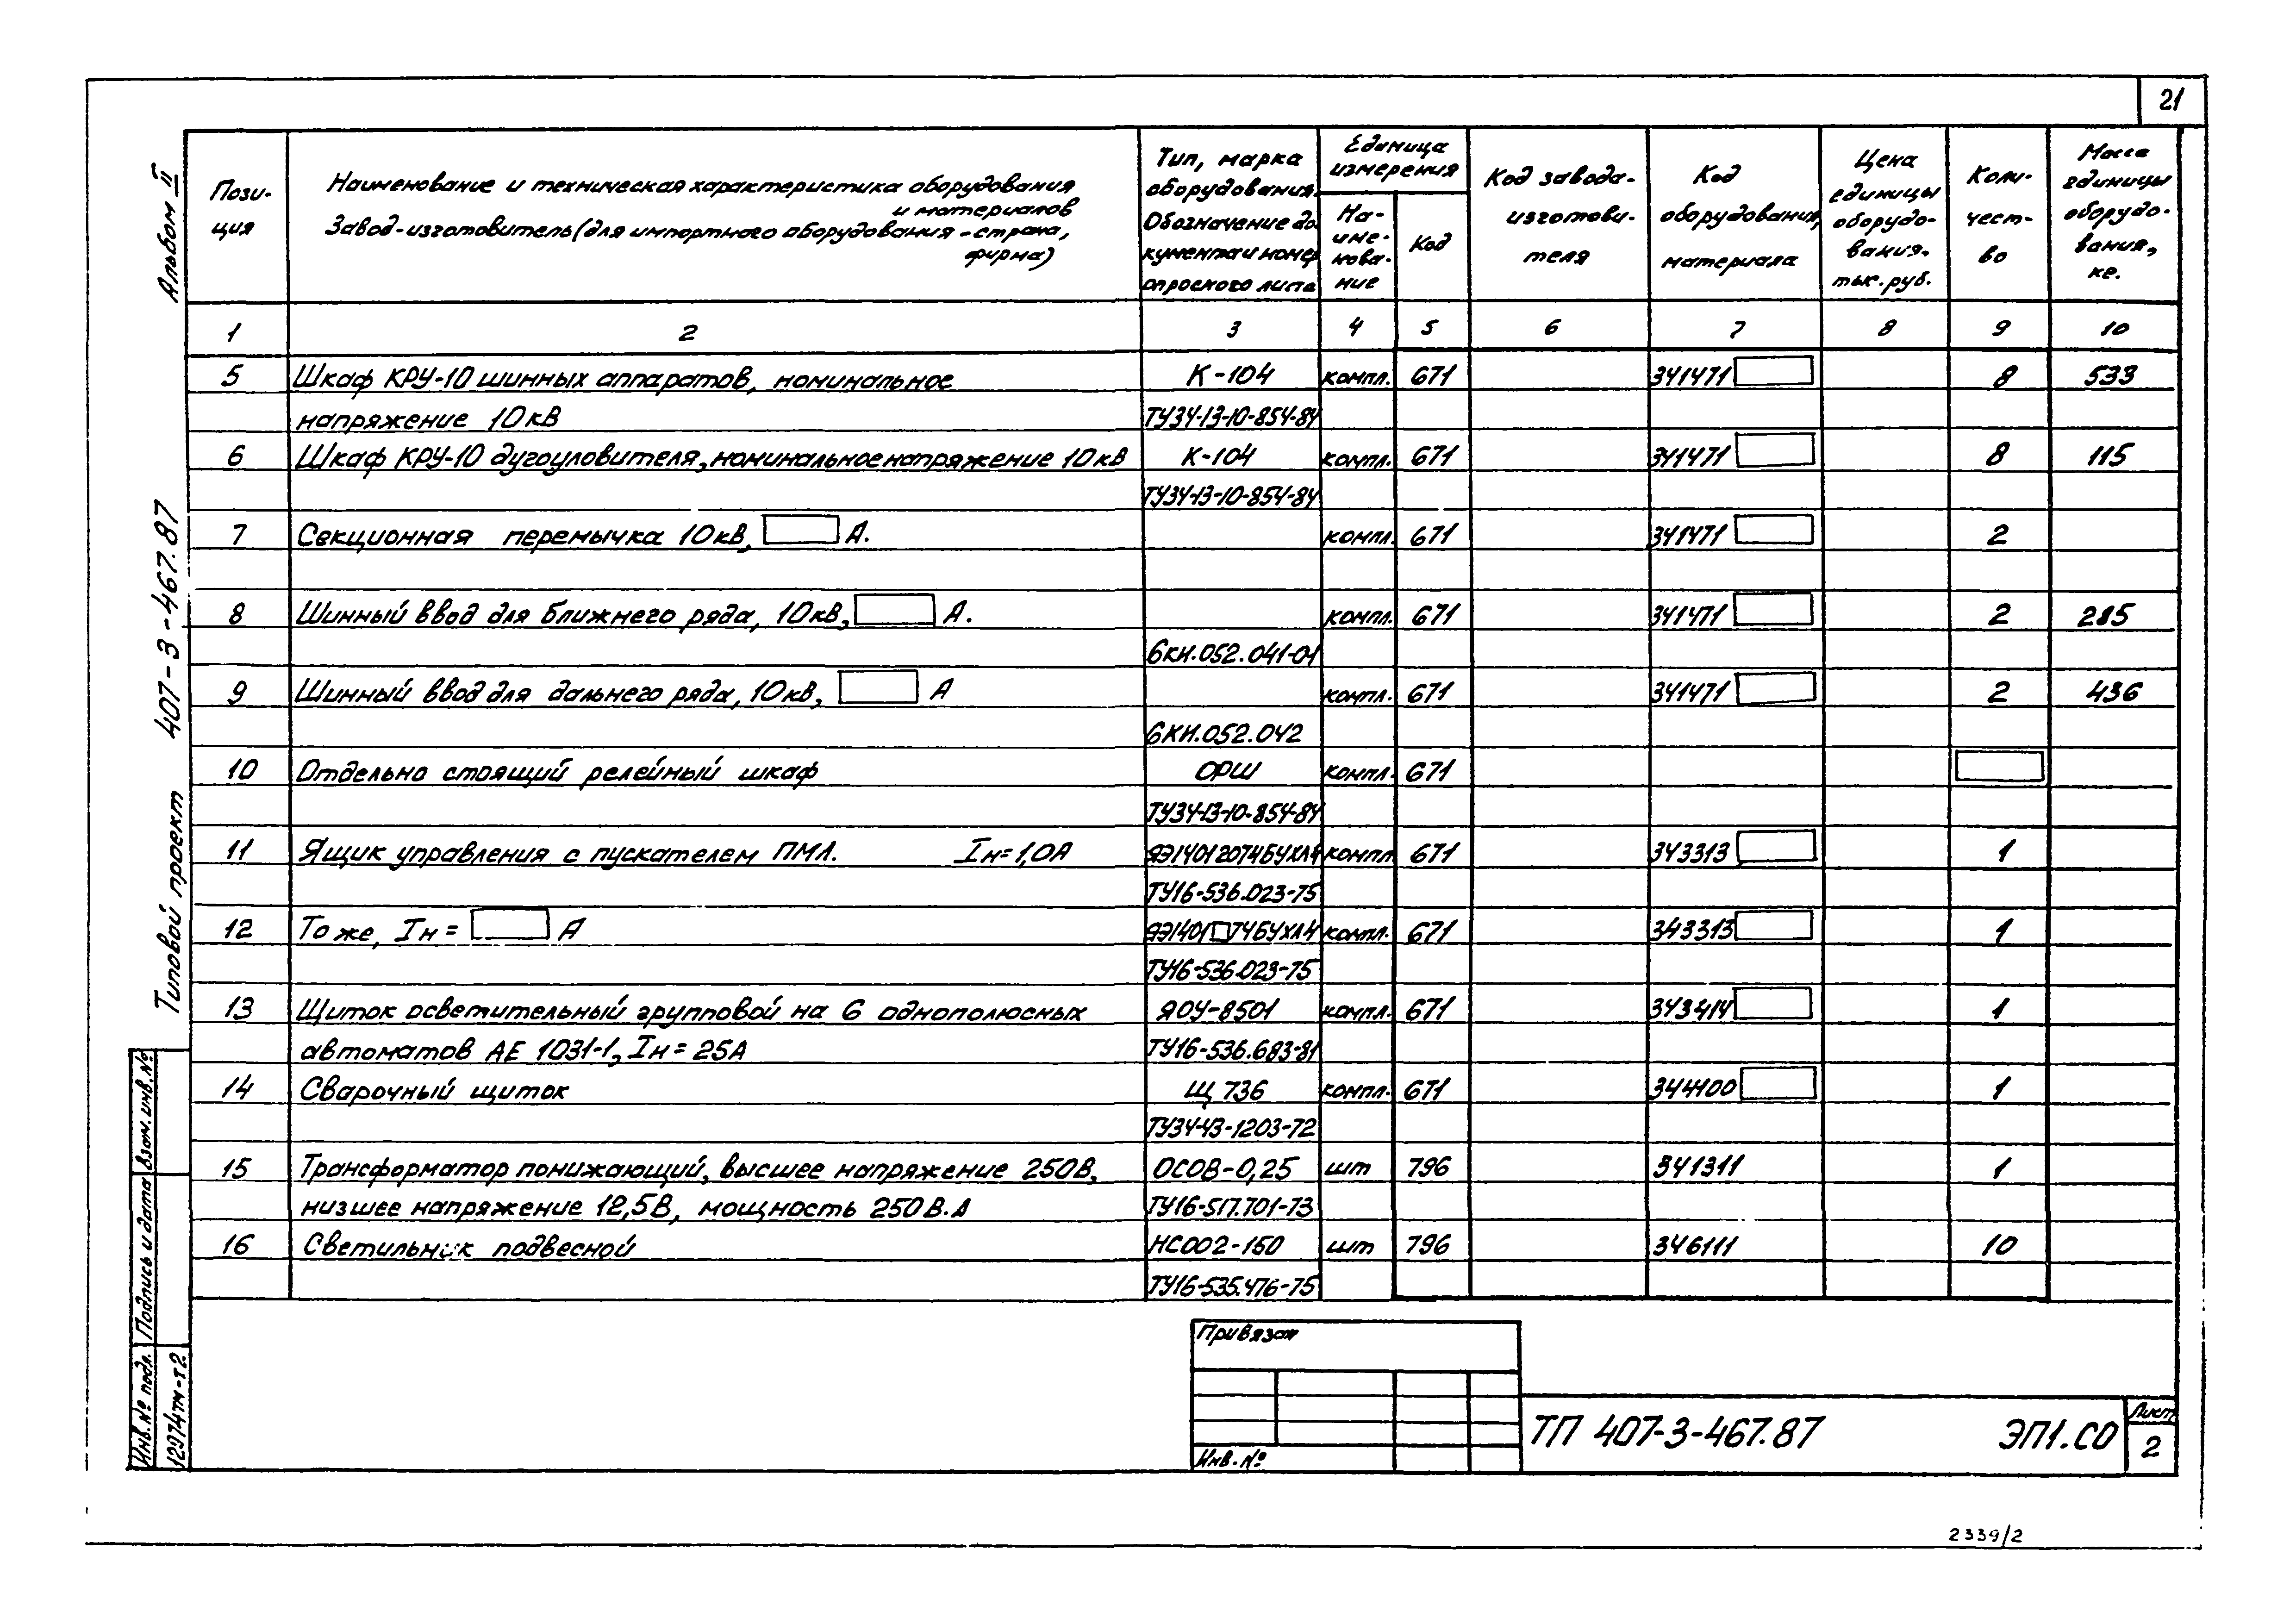 21
Альбом II
Типовой проект 407-3-467.87
Пози-
ция
Наименование и техническая характеристика оборудования
и материалов
Завод-изготовитель (для импортного оборудования - страна,
фирма)
Тип, марка
оборудования.
Обозначение до-
кумента и номер
опросного листа
Единица
измерения
На-
име-
нова-
ние
Код
Код завода-
изготови-
теля
Код
оборудования,
материала
Цена
единицы
оборудо-
вания,
тыс. руб.
Коли-
чест-
во
Масса
единицы
оборудо-
вания,
кг.
1 2 3 4 5 6 7 8 9 10
5 Шкаф КРУ-10 шинных аппаратов, номинальное К-104 компл. 671 341471 8 533
напряжение 10кВ ТУ34-13-10-854-84
6 Шкаф КРУ-10 дугоуловителя, номинальное напряжение 10кВ К-104 компл. 671 341471 8 115
ТУ34-13-10-854-84
7 Секционная перемычка 10кВ, А. компл. 671 341471 2
8 Шинный ввод для ближнего ряда, 10кВ, А. компл. 671 341471 2 285
6КИ.052.041-01
9 Шинный ввод для дальнего ряда, 10кВ, А компл. 671 341471 2 436
6КИ.052.042
10 Отдельно стоящий релейный шкаф ОРШ компл. 671
ТУ34-13-10-854-84
11 Ящик управления с пускателем ПМЛ. Iн=1,0А ЯЭ14012074БУХЛ4 компл. 671 343313 1
ТУ16-536.023-75
12 То же, Iн = А ЯЭ1401□74БУХЛ4 компл. 671 343313 1
ТУ16-536.023-75
13 Щиток осветительный групповой на 6 однополюсных ЯОУ-8501 компл. 671 343414 1
автоматов АЕ 1031-1, Iн = 25А ТУ16-536.683-81
14 Сварочный щиток Щ 736 компл. 671 344100 1
ТУ34-43-1203-72
15 Трансформатор понижающий, высшее напряжение 250В, ОСОВ-0,25 шт 796 341311 1
низшее напряжение 12,5В, мощность 250В.А ТУ16-517.701-73
16 Светильник подвесной НСО02-150 шт 796 346111 10
ТУ16-535.476-75
Инв. № подл. Подпись и дата Взам. инв. №
12974тм-т2
Привязан
Инв. №
ТП 407-3-467.87 ЭП1.СО
Лист
2
2339/2